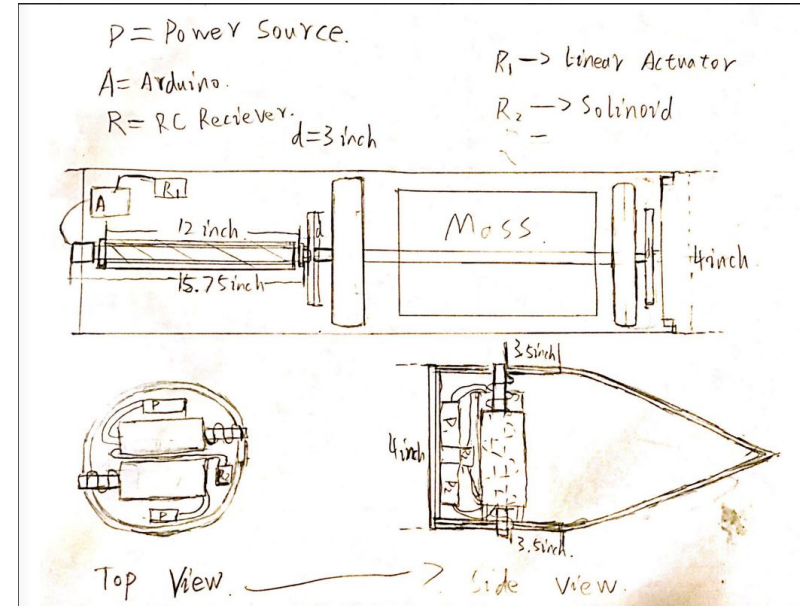 P = Power Source.
A = Arduino.
R = RC Reciever.
d=3 inch
R₁ → Linear Actuator
R₂ → Solinoid
A
R₁
12 inch
15.75 inch
d
Moss
4 inch
P
R₂
P
3.5 inch
4 inch
3.5 inch.
Top View. → Side View.